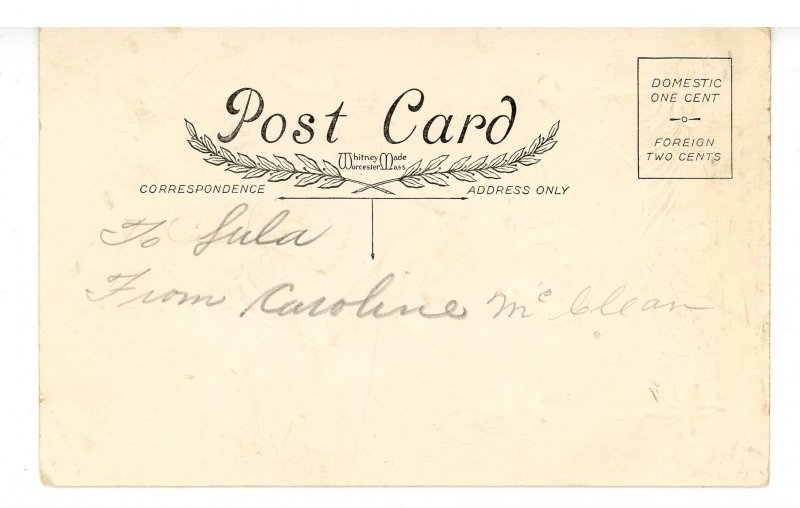 Post Card
Whitney Made
Worcester Mass.
CORRESPONDENCE
ADDRESS ONLY
DOMESTIC
ONE CENT
FOREIGN
TWO CENTS
To Lula
From Caroline McClean